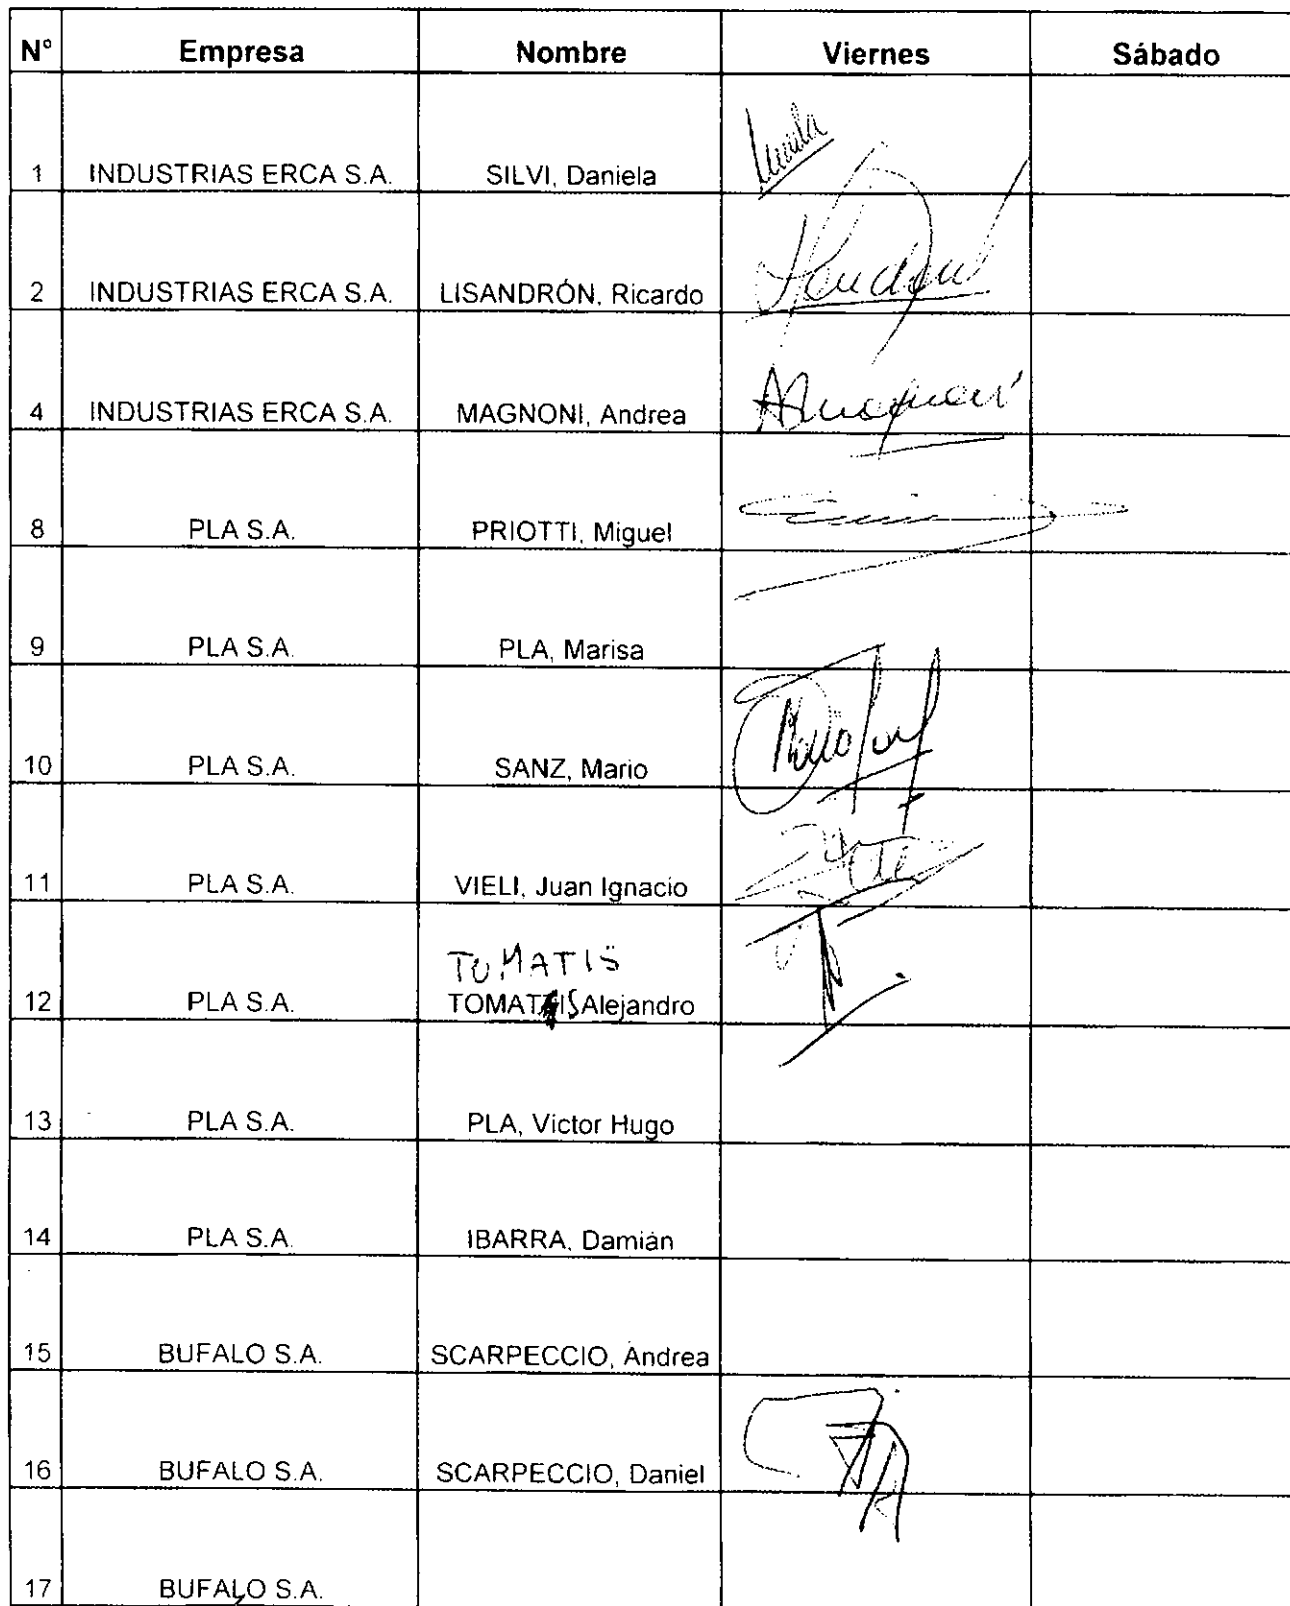 N° Empresa Nombre Viernes Sábado
1 INDUSTRIAS ERCA S.A. SILVI, Daniela
2 INDUSTRIAS ERCA S.A. LISANDRÓN, Ricardo
4 INDUSTRIAS ERCA S.A. MAGNONI, Andrea
8 PLA S.A. PRIOTTI, Miguel
9 PLA S.A. PLA, Marisa
10 PLA S.A. SANZ, Mario
11 PLA S.A. VIELI, Juan Ignacio
TOMATIS
12 PLA S.A. TOMATIS Alejandro
13 PLA S.A. PLA, Victor Hugo
14 PLA S.A. IBARRA, Damián
15 BUFALO S.A. SCARPECCIO, Andrea
16 BUFALO S.A. SCARPECCIO, Daniel
17 BUFALO S.A.